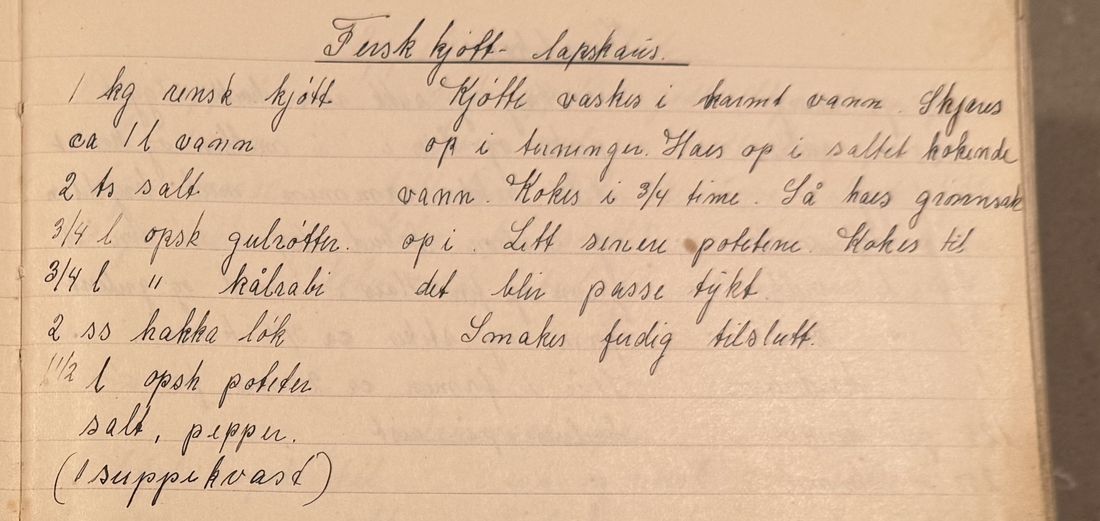 Fersk kjøtt- lapskaus.
1 kg rensk kjøtt
ca 1 l vann
2 ts salt
3/4 l opsk gulrøtter.
3/4 l " kålrabi
2 ss hakka løk
1 1/2 l opsk poteter
salt, pepper.
(1 suppekvast)
Kjøtte vaskes i varmt vann. Skjæres
op i terninger. Haes op i saltet kokende
vann. Kokes i 3/4 time. Så haes grønnsak
op i. Litt senere potetene. Kokes til
det blir passe tykt.
Smakes ferdig tilslutt.